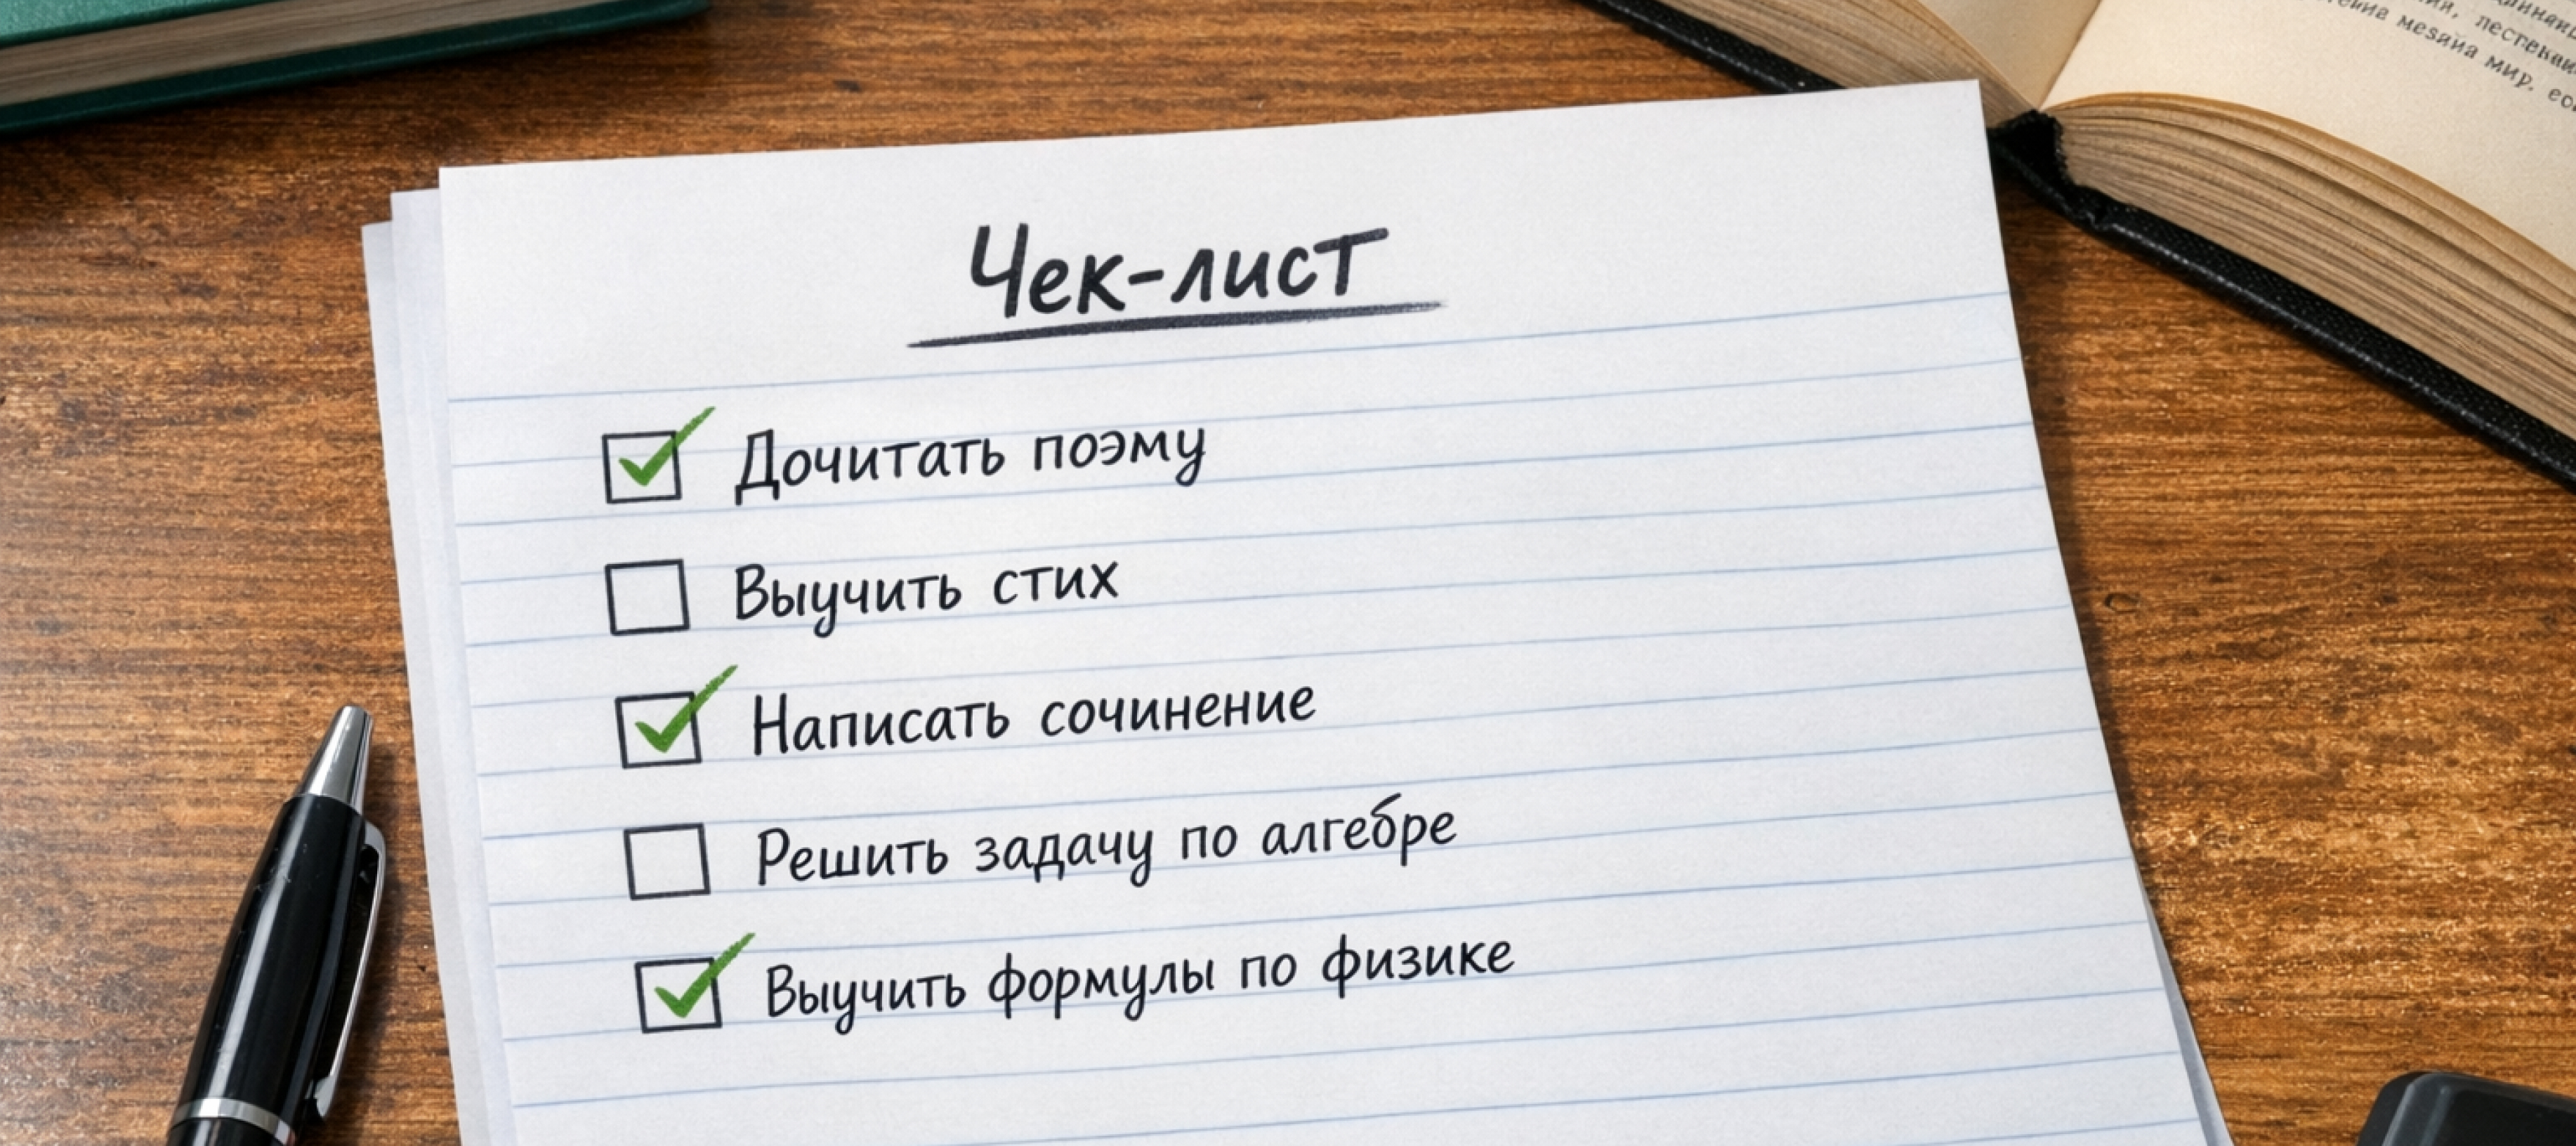 Чек-лист
Дочитать поэму
Выучить стих
Написать сочинение
Решить задачу по алгебре
Выучить формулы по физике